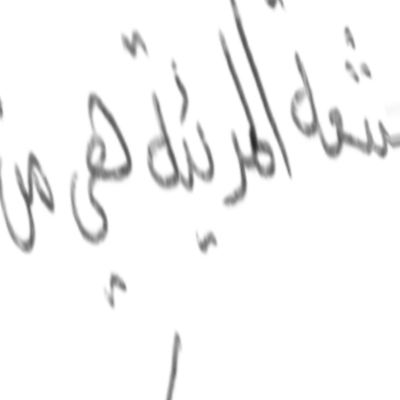 شعة المرئية هي من